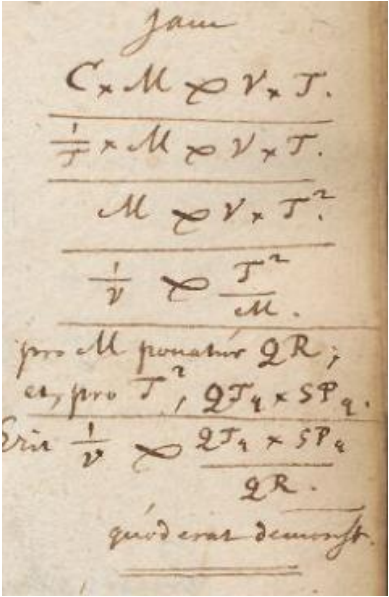 Jam
C × M ∝ V × T.
1/T × M ∝ V × T.
M ∝ V × T².
1/V ∝ T²/M.
pro M ponatur QR;
et, pro T², QTq × SPq.
Erit 1/V ∝ QTq × SPq/QR.
quod erat demonst.